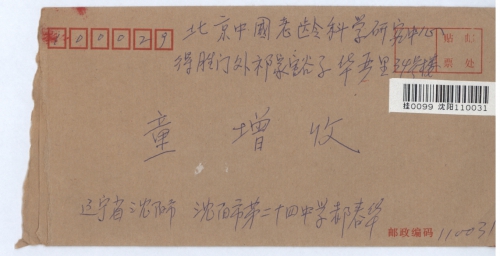 100029
北京中國老龄科学研究中心
贴 汇
得胜门外祁家豁子华严里34号楼
票 处
桂0099 沈阳110031
童增收
辽宁省沈阳市 沈阳市第二十四中学郝春华
邮政编码 110031